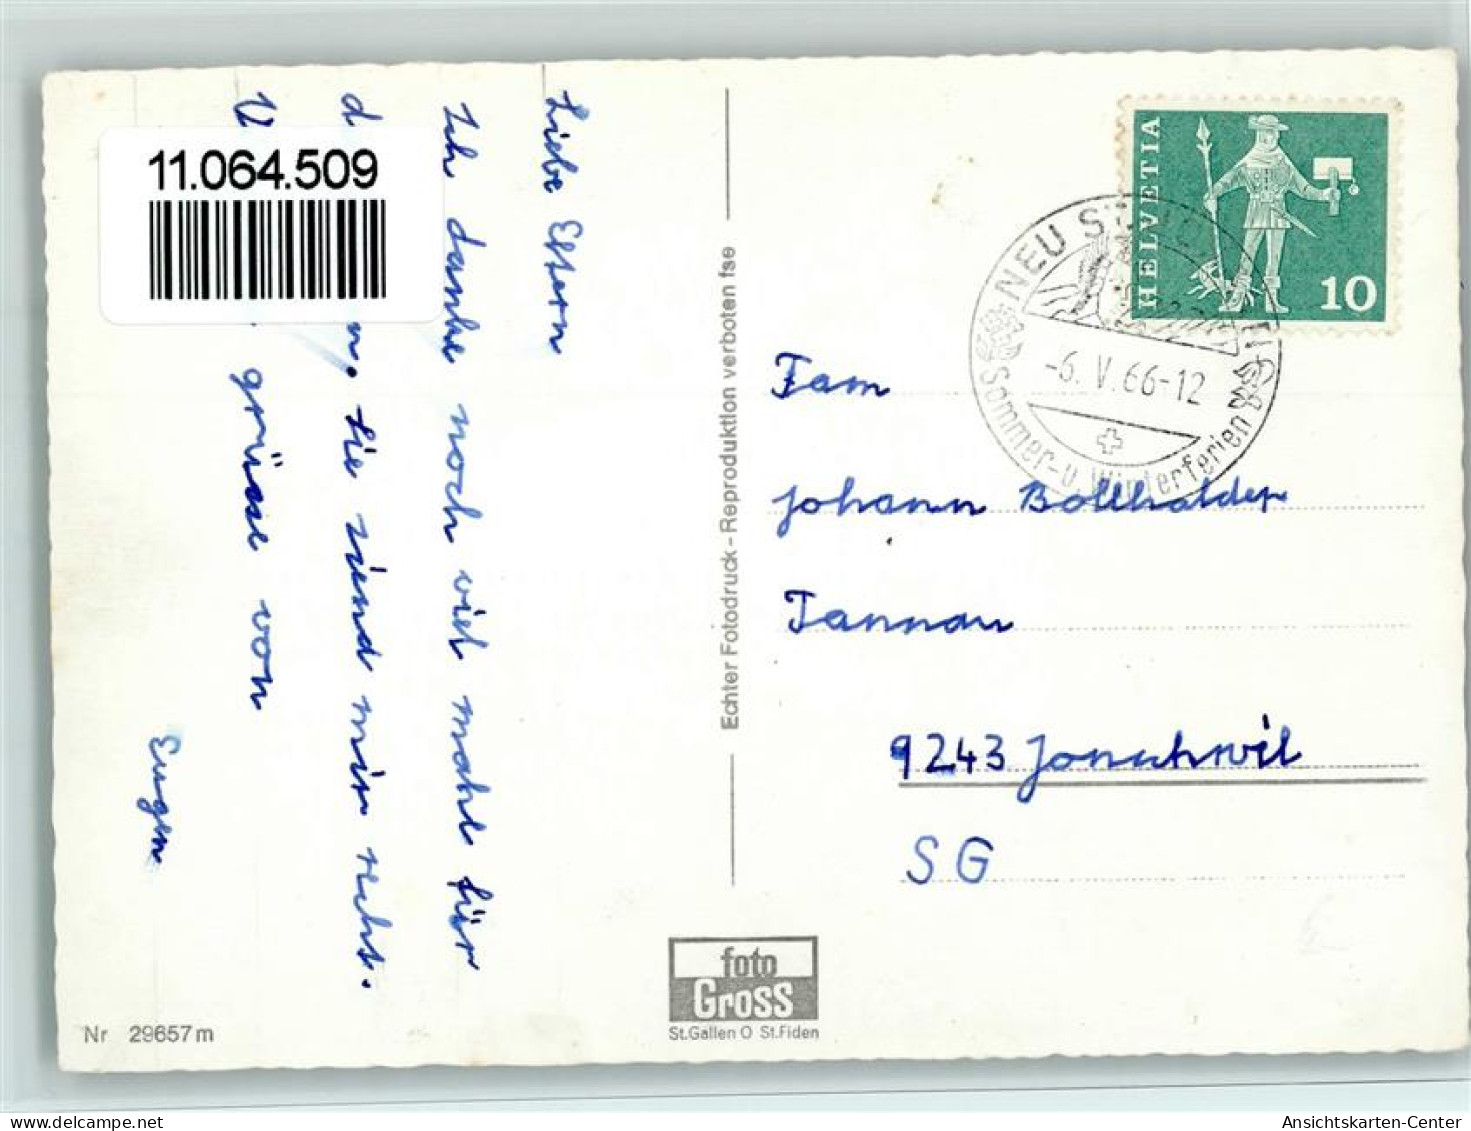 Liebe Eltern
Ich danke noch viel mahl für
d n. Sie sind mir recht.
V grüsse von
Eugen
11.064.509
Echter Fotodruck - Reproduktion verboten fse
HELVETIA
10
NEU ST
-6. V. 66-12
Sommer- u. Winterferien
Fam
Johann Bollhalder
Tannau
9243 Jonschwil
SG
foto
Gross
St.Gallen O St.Fiden
Nr 29657m
Ansichtskarten-Center